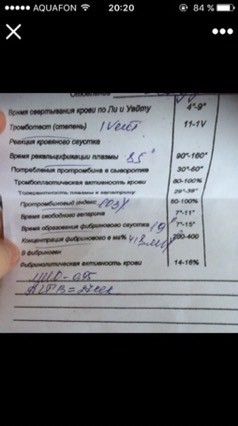 AQUAFON 20:20 84 %
Время свертывания крови по Ли и Уайту 4"-9"
Тромботест (степень) 11-1V
Реакция кровяного сгустка
Время рекальцификации плазмы 85" 90"-160"
Потребления протромбина в сыворотке 30"-60"
Тромбопластическая активность крови 80-100%
29"-38"
Протромбиновый индекс 103% 80-100%
Время свободного гепарина 7"-11"
Время образования фибринового сгустка 7"-15"
Концентрация фибринового в ма% 200-400
В фибриноген
Фибринолитическая активность крови 14-16%
МНО - 0,95
АПТВ =